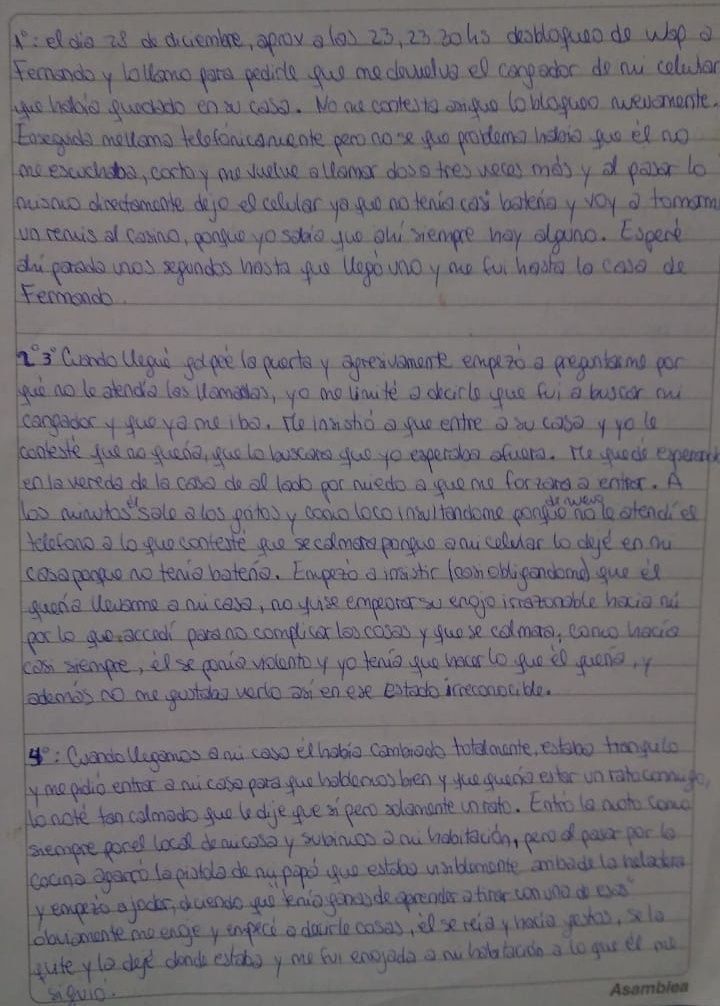 1°: el dia 28 de diciembre, aprox a las 23, 23.30 hs desbloqueo de wsp a
Fernando y lo llamo para pedirle que me devuelva el cargador de mi celular
que había quedado en su casa. No me contesta asi que lo bloqueo nuevamente.
Enseguida me llama telefónicamente pero no se que problema había que él no
me escuchaba, corto y me vuelve a llamar dos o tres veces más y al pasar lo
mismo directamente dejo el celular ya que no tenía casi batería y voy a tomarm
un remis al casino, porque yo sabía que ahí siempre hay alguno. Esperé
ahi parada unos segundos hasta que llegó uno y me fui hasta la casa de
Fernando.
2° 3° Cuando llegué golpeé la puerta y agresivamente empezó a preguntarme por
qué no le atendía las llamadas, yo me limité a decirle que fui a buscar mi
cargador y que ya me iba. Me insistió a que entre a su casa y yo le
contesté que no quería, que lo buscara que yo esperaba afuera. Me quede esperand
en la vereda de la casa de al lado por miedo a que me forzara a entrar. A
los minutos él sale a los gritos y como loco insultandome porque no le atendí el
de nuevo
telefono a lo que contesté que se calmara porque a mi celular lo dejé en mi
casa porque no tenía batería. Empezó a insistir (casi obligandome) que él
quería llevarme a mi casa, no quise empeorar su enojo irrazonable hacia mí
por lo que accedí para no complicar las cosas y que se calmara, como hacía
casi siempre, él se ponía violento y yo tenía que hacer lo que él quería, y
además no me gustaba verlo así en ese estado irreconocible.
4°: Cuando llegamos a mi casa él había cambiado totalmente, estaba tranquilo
y me pidió entrar a mi casa para que hablemos bien y que quería estar un rato conmigo,
lo noté tan calmado que le dije que sí pero solamente un rato. Entró la moto como
siempre por el local de mi casa y subimos a mi habitación, pero al pasar por la
cocina agarró la pistola de mi papá que estaba visiblemente arriba de la heladera
y empezo a joder, diciendo que "tenía ganas de aprender a tirar con una de esas"
obviamente me enoje y empecé a decirle cosas, él se reía y hacía gestos, se la
quite y la dejé donde estaba y me fui enojada a mi habitación a lo que él me
siguió.
Asamblea